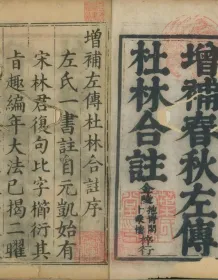 增補春秋左傳
杜林合註
金陵
梓行
增補左傳杜林合註序
左氏一書註自元凱始有
宋林君復句比字櫛衍其
旨趣編年大法已揭二曜